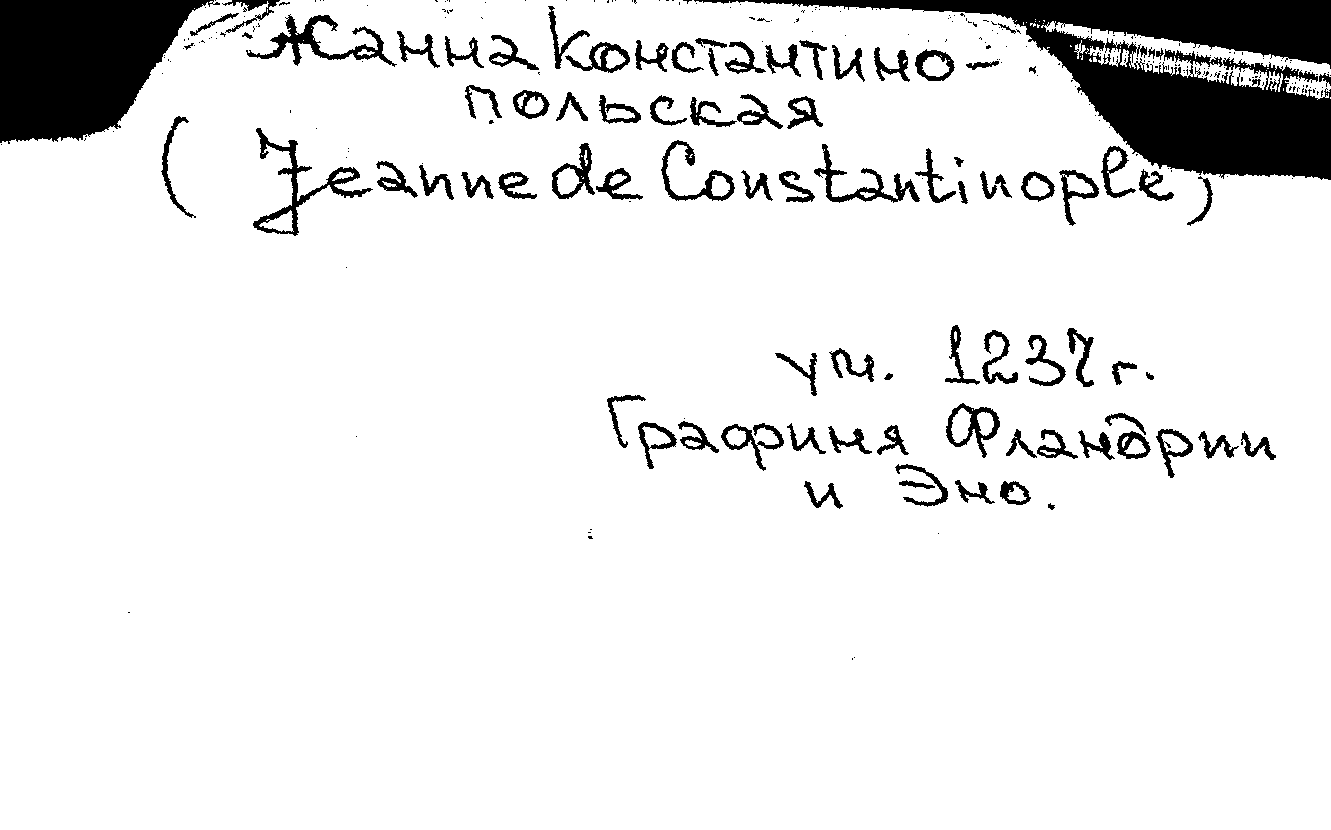 Жанна Константино-
польская
(Jeanne de Constantinople)
ум. 1237 г.
Графиня Фландрии
и Эно.